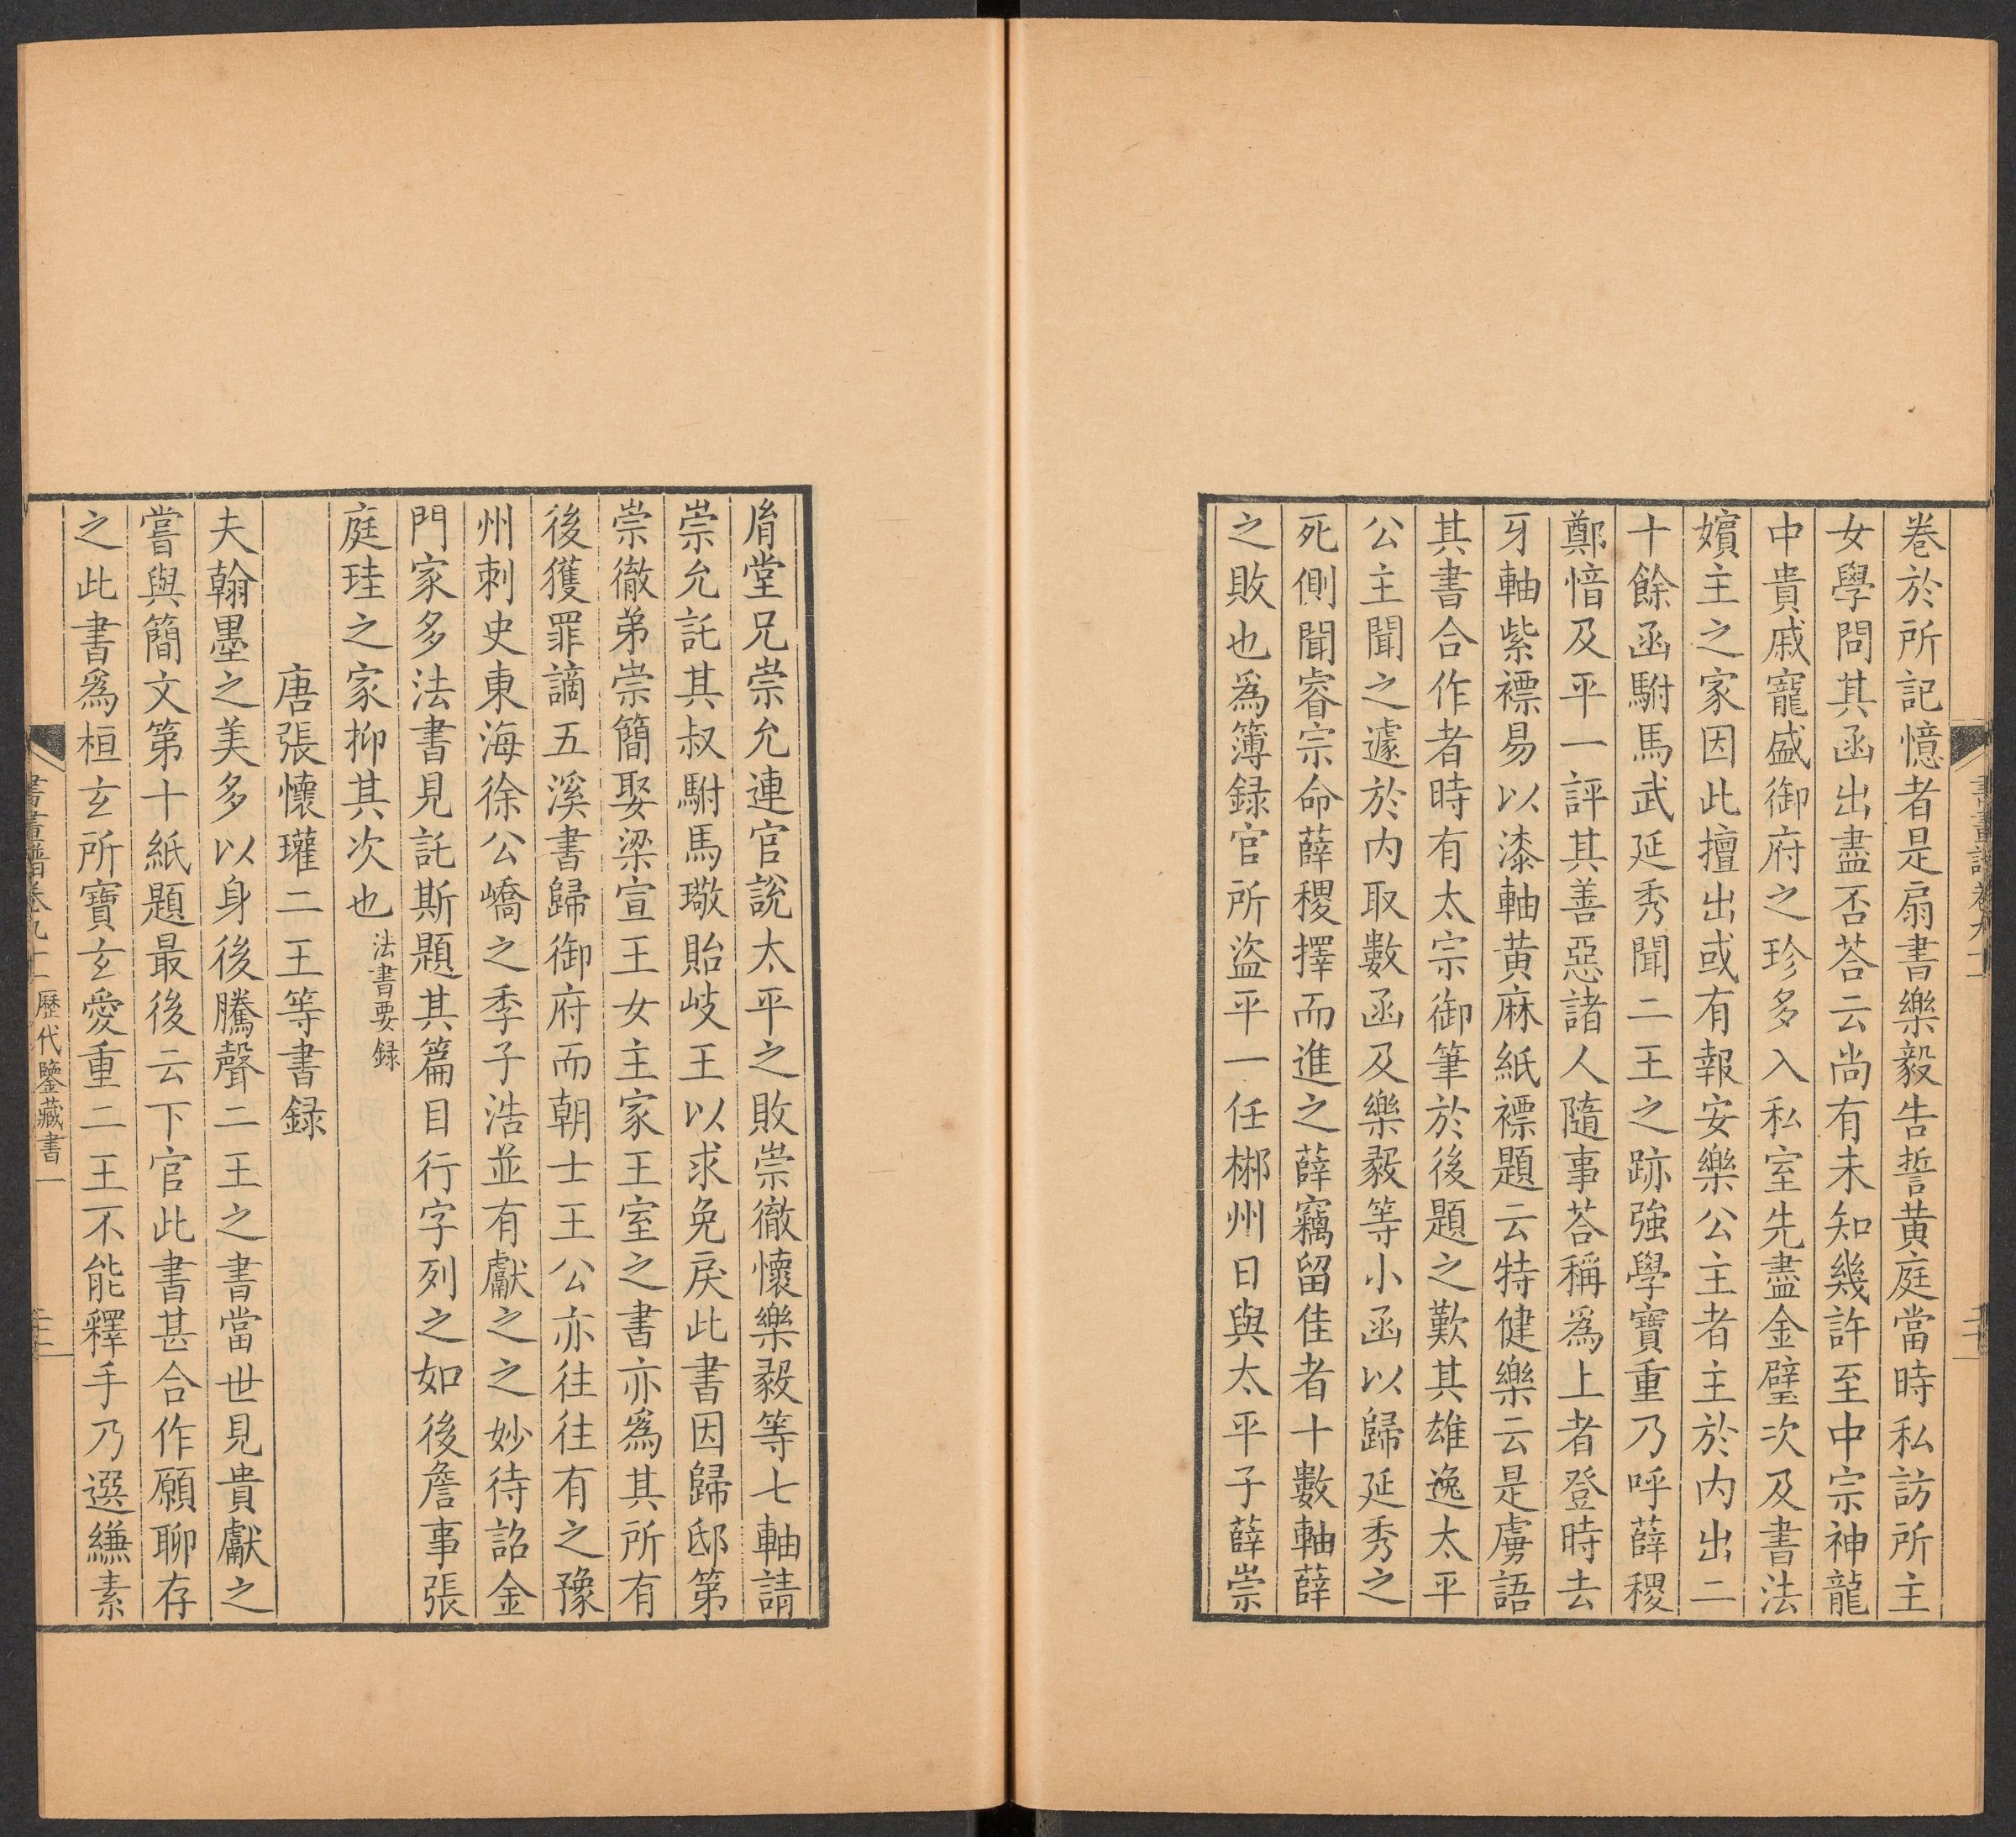 卷於所記憶者是扇書樂毅告誓黃庭當時私訪所主
女學問其函出盡否荅云尚有未知幾許至中宗神龍
中貴戚寵盛御府之珍多入私室先盡金璧次及書法
嬪主之家因此擅出或有報安樂公主者主於內出二
十餘函駙馬武延秀聞二王之跡強學寶重乃呼薛稷
鄭愔及平一評其善惡諸人隨事荅稱爲上者登時去
牙軸紫褾易以漆軸黃麻紙褾題云特健樂云是虜語
其書合作者時有太宗御筆於後題之歎其雄逸太平
公主聞之遽於內取數函及樂毅等小函以歸延秀之
死側聞睿宗命薛稷擇而進之薛竊留佳者十數軸薛
之敗也爲簿録官所盜平一任郴州日與太平子薛崇
㣧堂兄崇允連官說太平之敗崇徹懷樂毅等七軸請
崇允託其叔駙馬璥貽岐王以求免戾此書因歸邸第
崇徹弟崇簡娶梁宣王女主家王室之書亦爲其所有
後獲罪謫五溪書歸御府而朝士王公亦往往有之豫
州刺史東海徐公嶠之季子浩並有獻之之妙待詔金
門家多法書見託斯題其篇目行字列之如後詹事張
庭珪之家抑其次也 法書要録
唐張懷瓘二王等書録
夫翰墨之美多以身後騰聲二王之書當世見貴獻之
嘗與簡文第十紙題最後云下官此書甚合作願聊存
之此書爲桓玄所寶玄愛重二王不能釋手乃選縑素
書畫譜卷九十一 歷代鑒藏書一